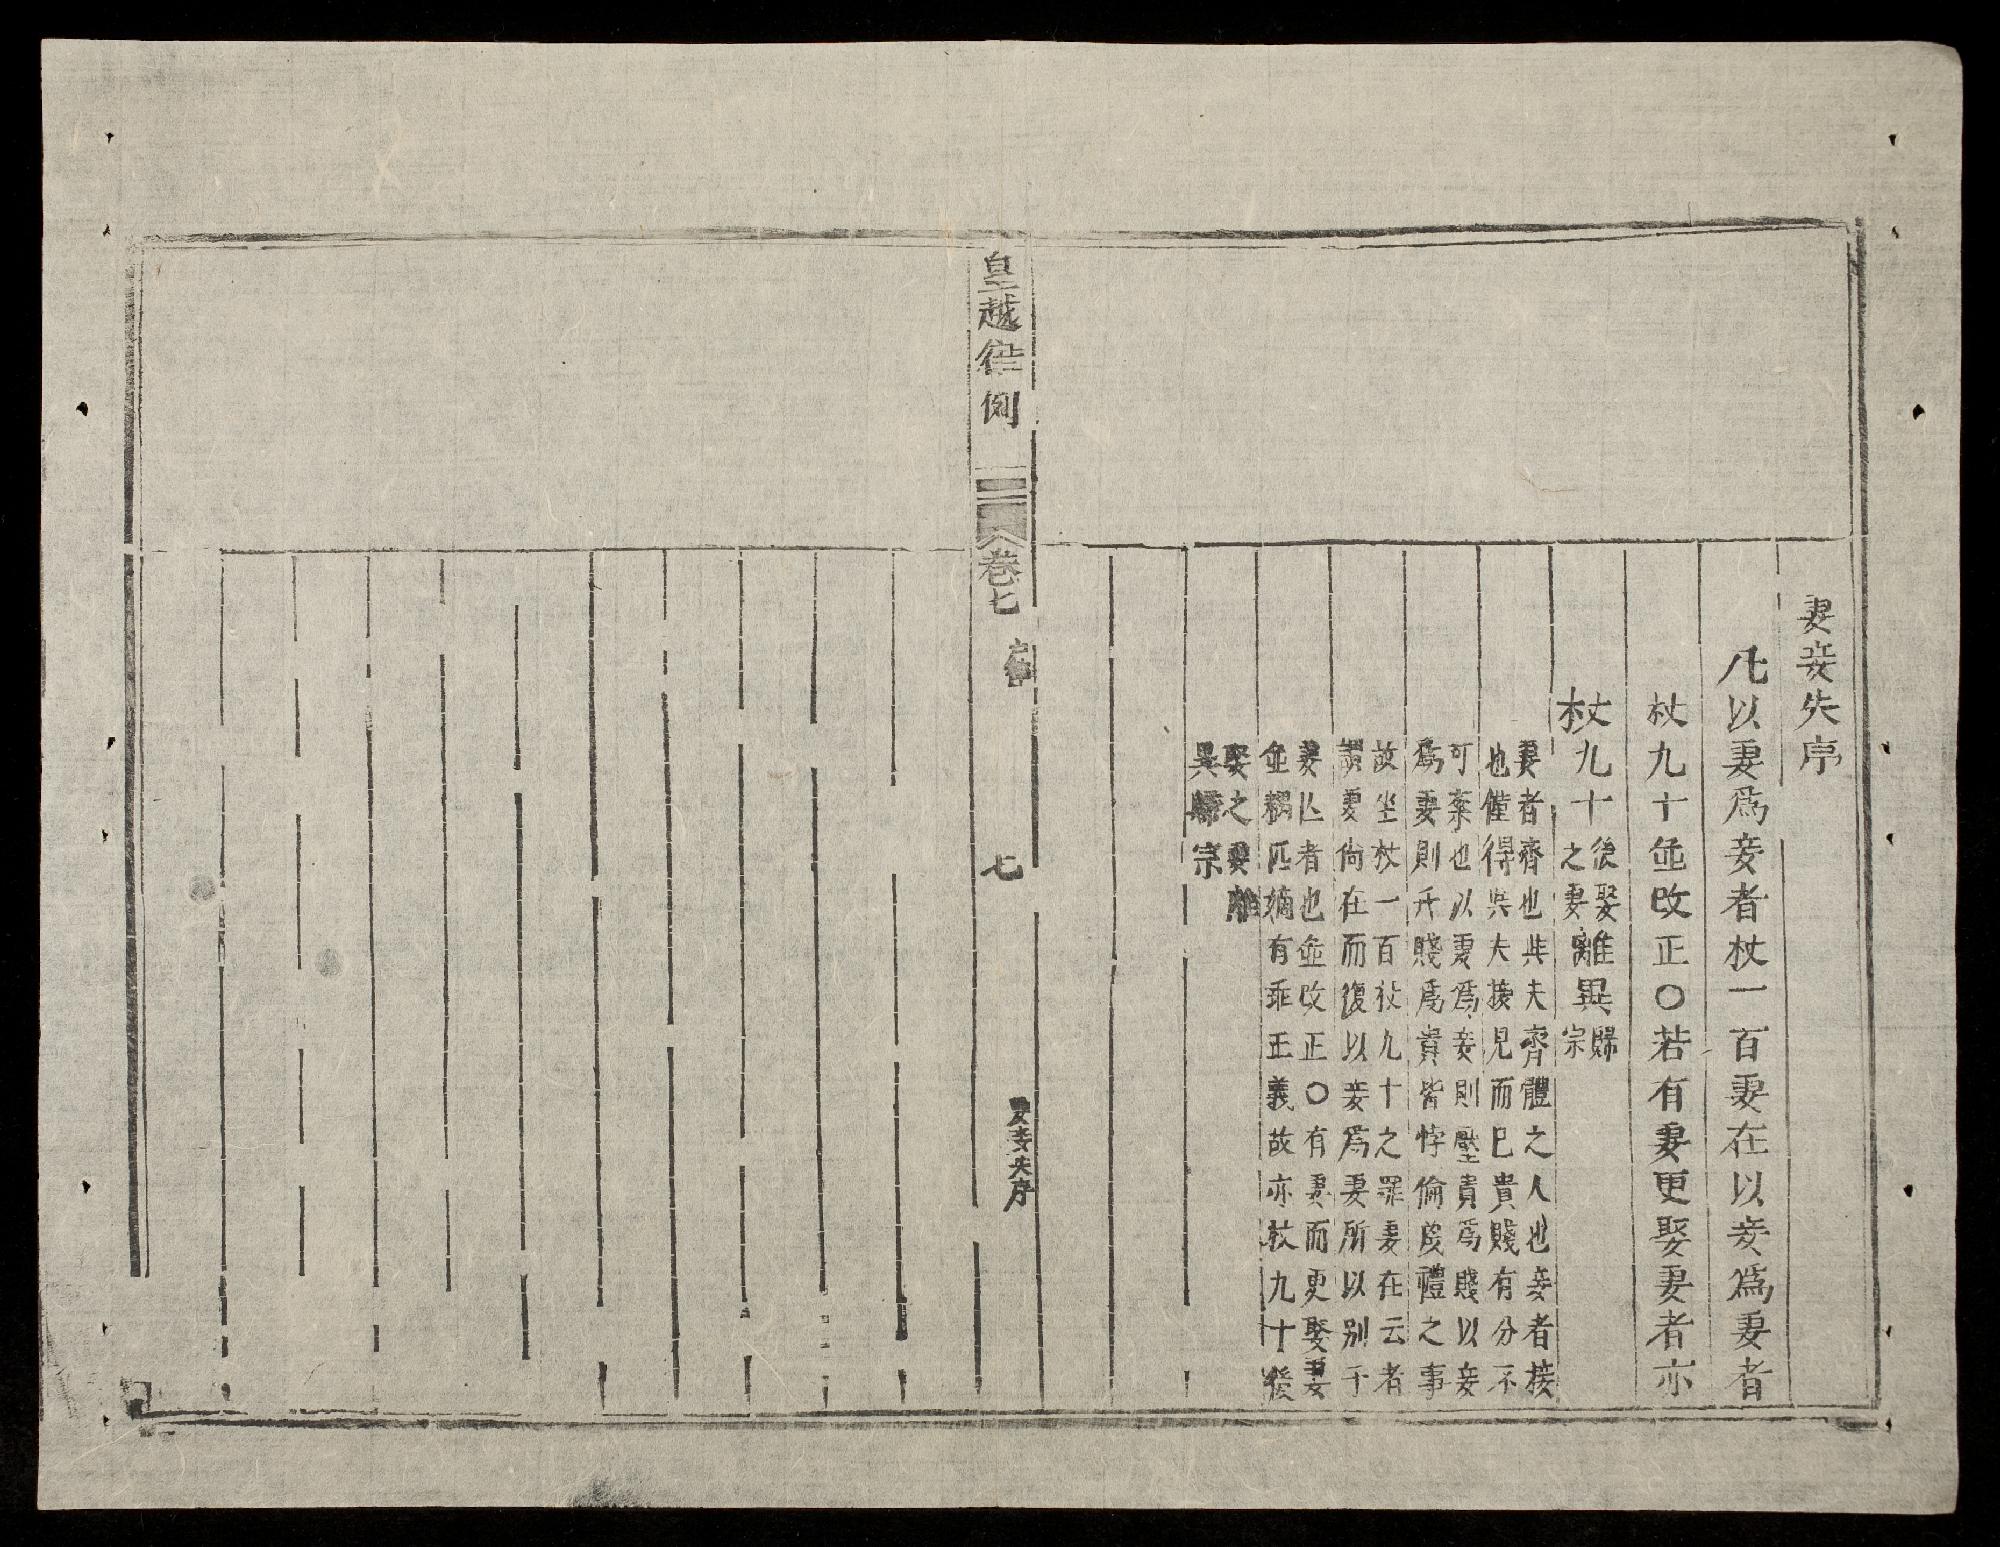 妻妾失序
凡以妻爲妾者杖一百妻在以妾爲妻者
杖九十並改正〇若有妻更娶妻者亦
杖九十後娶之妻離異歸宗
妻者齊也與夫齊體之人也妾者接
也僅得與夫接見而已貴賤有分不
可紊也以妻爲妾則壓貴爲賤以妾
爲妻則升賤爲貴皆悖倫廢禮之事
故坐杖一百杖九十之罪妻在云者
謂妻尚在而復以妾爲妻所以别于
妻亾者也並改正〇有妻而更娶妻
並耦匹嫡有乖正義故亦杖九十後
娶之妻離
異歸宗
皇越律例
卷七
七
妻妾失序